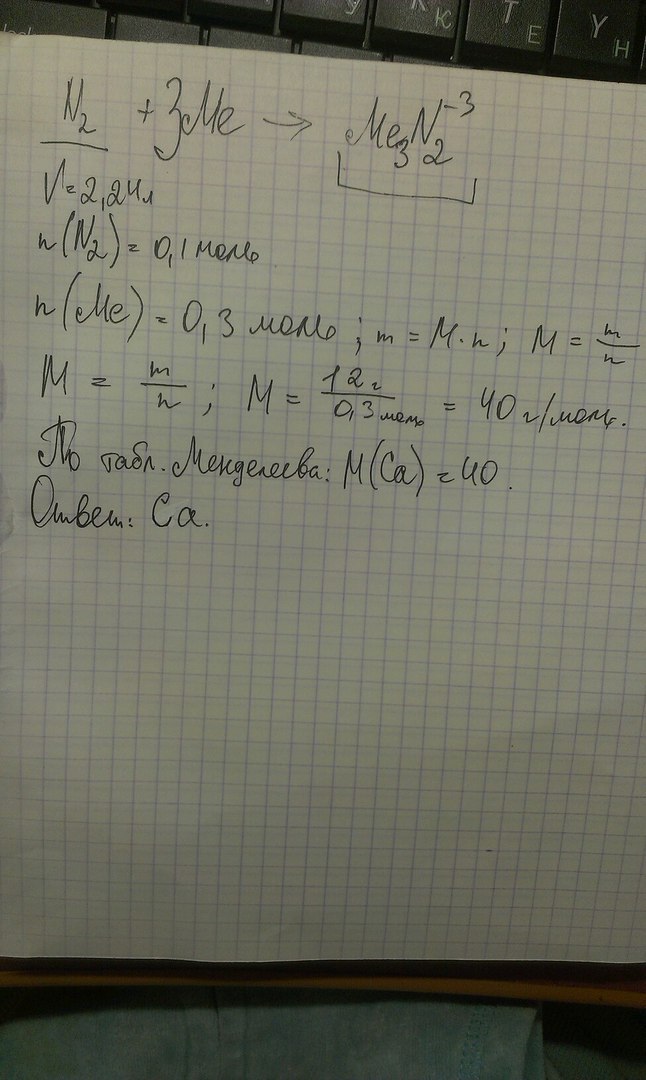 У К Ю Т Е Y Н
N₂ + 3Me → Me₃N₂⁻³
V=2,24л
n(N₂) = 0,1 моль
n(Me) = 0,3 моль ; m = M·n ; M = m/n
M = m/n ; M = 12г/0,3моль = 40 г/моль.
По табл. Менделеева: M(Ca) = 40.
Ответ: Ca.